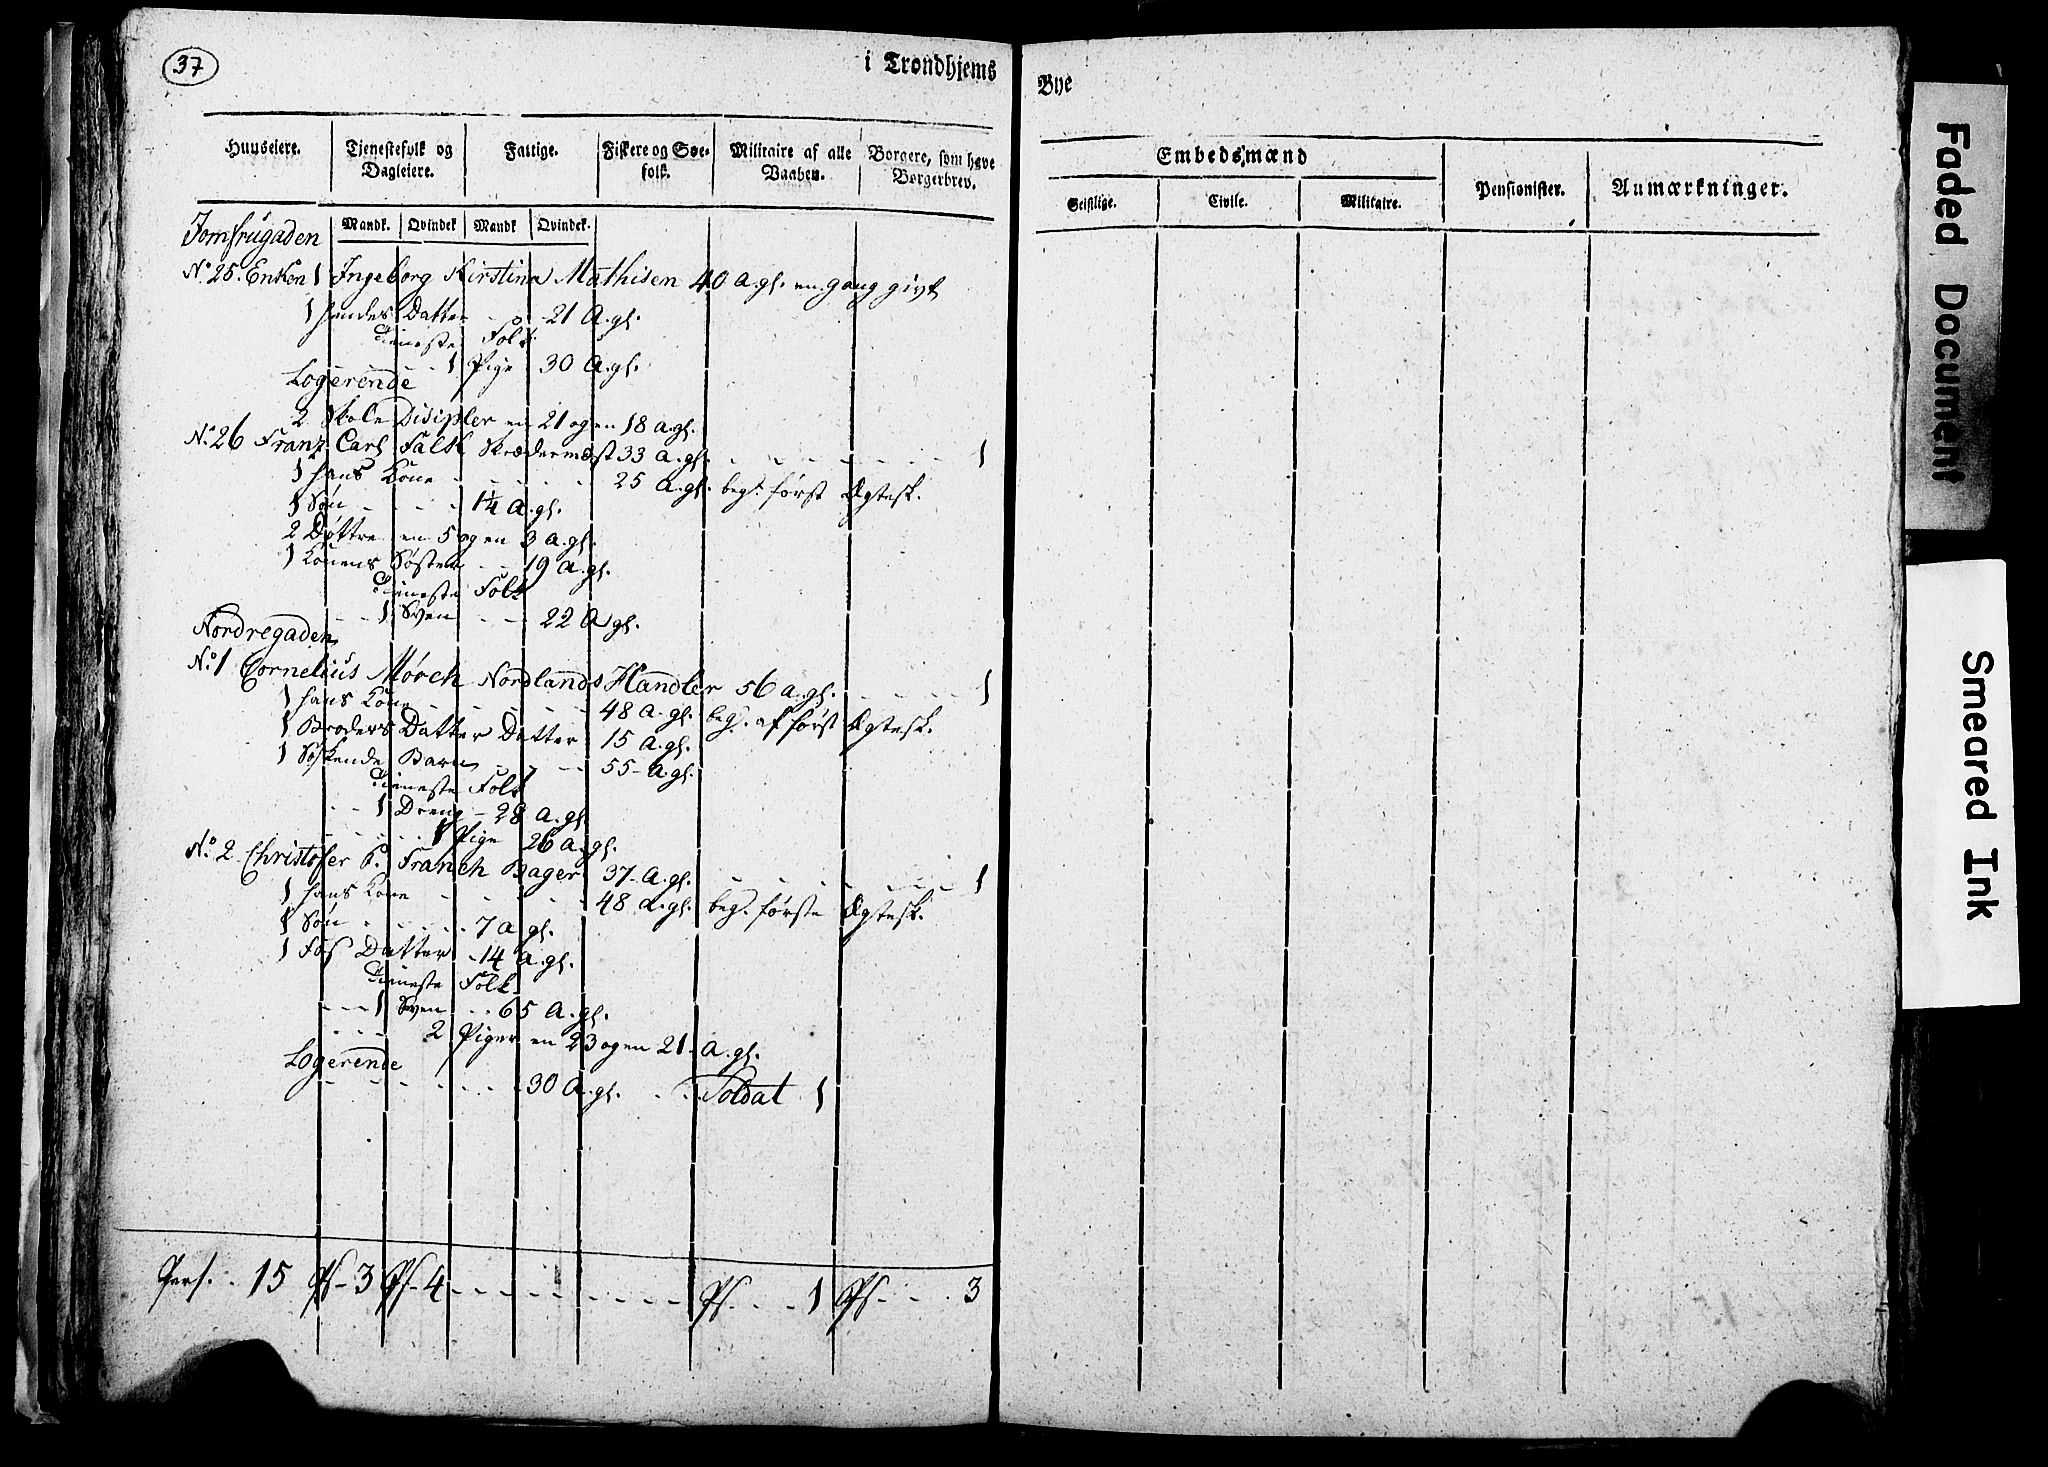 37
i Trondhjems Bye
Huuseiere. Tjenestefolk og Dagleiere. Fattige. Fiskere og Søefolk. Militaire af alle Vaaben. Borgere, som have Borgerbrev.
Mandk. Qvindek Mandk Qvindek.
Embedsmænd
Geistlige. Civile. Militaire. Pensionister. Anmærkninger.
Jomfrugaden
No. 25. Enken 1 Ingeborg Kirstina Mathisen 40 A. gl. en gang givt
1 hendes Datter - - 21 A. gl.
Tieneste Folk
- - - 1 Pige 30 A. gl.
Logerende
2 Skole Disipler en 21 og en 18 a. gl.
No. 26 Franz Carl Falck Skrædermest 33 a. gl. - - - - - - - 1
1 hans Kone - - - - - 25 a. gl. begl. først Ægtesk.
1 Søn - - - - 1¼ a. gl.
2 Døttre en 5 og en 3 a. gl.
1 Konens Søster - - 19 a. gl.
Tieneste Folk
- - 1 Sven - - 22 A gl.
Nordregaden
No. 1 Cornelius Mørch Nordlands Handler 56 a. gl. - - - - - 1
1 hans Kone - - - - - 48 a. gl. beg. af først Ægtesk.
1 Broders Datter Datter 15 a. gl.
1 Søskende Barn - - - 55 - a. gl.
Tieneste Folk
- - 1 Dreng - 28 a. gl
- - - - - 1 Pige 26 a. gl.
No. 2 Christofer P. Franck Bager 37 - a. gl. - - - - - - - 1
1 hans Kone - - - - - 48 a. gl. beg. første Ægtesk.
1 Søn - - - - - 7 a gl.
1 Fos Datter - 14 a. gl.
Tieneste Folk
- - - 1 Sven - - 65 a. gl.
- - - - 2 Piger en 23 og en 21 - a. gl.
Logerende
- - - - - - 30 a. gl. - - - Soldat 1
Pers. - 15 Ps - 3 Ps - 4 - - - - - - - - - Ps - - - 1 Ps - - - 3
Faded Document
Smeared Ink